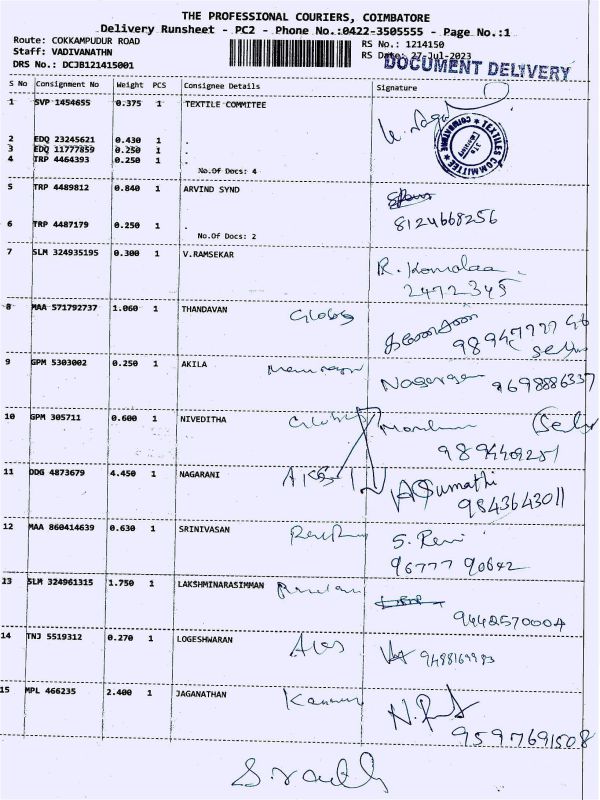 THE PROFESSIONAL COURIERS, COIMBATORE
Delivery Runsheet - PC2 - Phone No.:0422-3505555 - Page No.:1
Route: COKKAMPUDUR ROAD
Staff: VADIVANATHN
DRS No.: DCJB121415001
RS No.: 1214150
RS Date: 27-Jul-2023
DOCUMENT DELIVERY
S No Consignment No Weight PCS Consignee Details Signature
1 SVP 1454655 0.375 1 TEXTILE COMMITEE
TEXTILES COMMITTEE
COIMBATORE
2 EDQ 23245621 0.430 1 .
3 EDQ 11777859 0.250 1 .
4 TRP 4464393 0.250 1 .
No.Of Docs: 4
5 TRP 4489812 0.840 1 ARVIND SYND
8124668256
6 TRP 4487179 0.250 1 .
No.Of Docs: 2
7 SLM 324935195 0.300 1 V.RAMSEKAR
R. Komalaa
2472345
8 MAA 571792737 1.060 1 THANDAVAN
9 GPM 5303002 0.250 1 AKILA
9698886337
10 GPM 305711 0.600 1 NIVEDITHA
9894409251
11 DDG 4873679 4.450 1 NAGARANI
Sumathi
9843643011
12 MAA 860414639 0.630 1 SRINIVASAN
S. Revi
96777 90642
13 SLM 324961315 1.750 1 LAKSHMINARASIMMAN
9442570004
14 TNJ 5519312 0.270 1 LOGESHWARAN
9488169993
15 MPL 466235 2.400 1 JAGANATHAN
9597691508